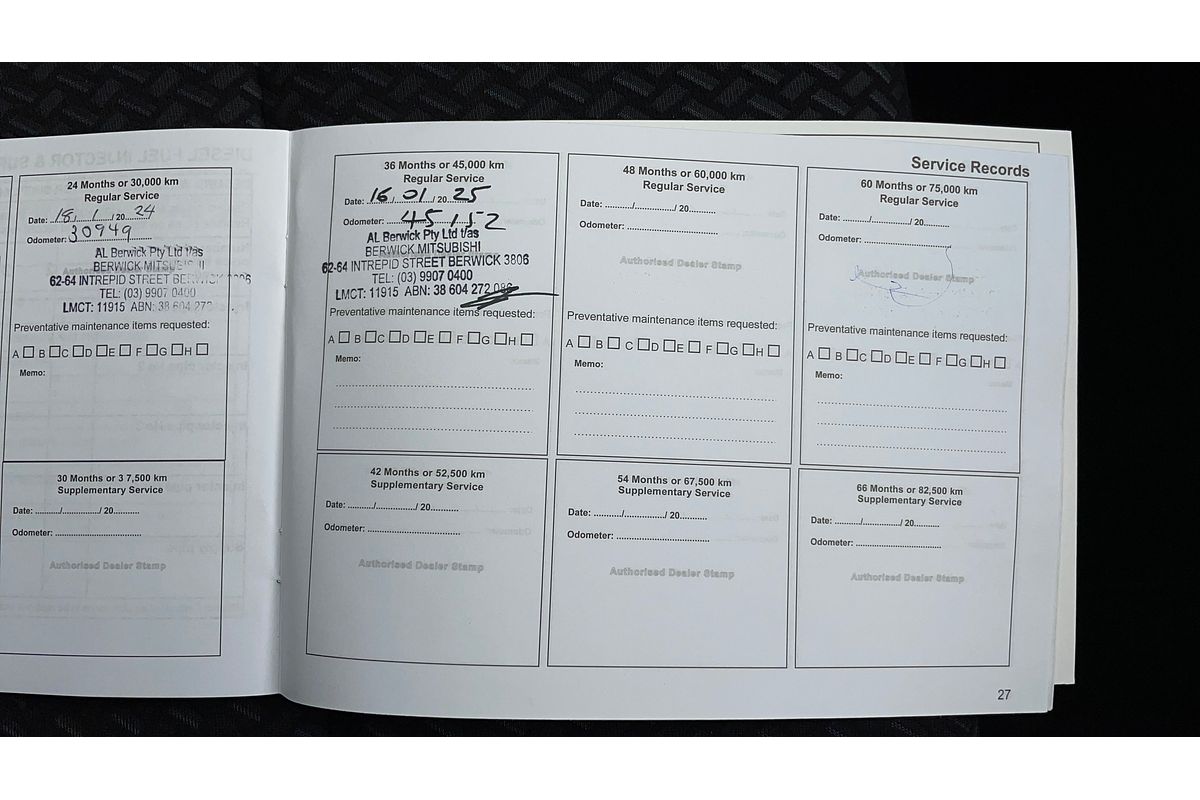 Service Records
24 Months or 30,000 km
Regular Service
Date: 18/1/2024
Odometer: 30949
AL Berwick Pty Ltd t/as
BERWICK MITSUBISHI
62-64 INTREPID STREET BERWICK 3806
TEL: (03) 9907 0400
LMCT: 11915 ABN: 38 604 272
Preventative maintenance items requested:
A □ B □ C □ D □ E □ F □ G □ H □
Memo:
30 Months or 3 7,500 km
Supplementary Service
Date: ........./............/ 20..........
Odometer: ..............................
Authorised Dealer Stamp
36 Months or 45,000 km
Regular Service
Date: 16/01/2025
Odometer: 45152
AL Berwick Pty Ltd t/as
BERWICK MITSUBISHI
62-64 INTREPID STREET BERWICK 3806
TEL: (03) 9907 0400
LMCT: 11915 ABN: 38 604 272 086
Preventative maintenance items requested:
A □ B □ C □ D □ E □ F □ G □ H □
Memo:
42 Months or 52,500 km
Supplementary Service
Date: ........./............/ 20..........
Odometer: ..............................
Authorised Dealer Stamp
48 Months or 60,000 km
Regular Service
Date: ........./............/ 20..........
Odometer: ..............................
Authorised Dealer Stamp
Preventative maintenance items requested:
A □ B □ C □ D □ E □ F □ G □ H □
Memo:
54 Months or 67,500 km
Supplementary Service
Date: ........./............/ 20..........
Odometer: ..............................
Authorised Dealer Stamp
60 Months or 75,000 km
Regular Service
Date: ........./............/ 20..........
Odometer: ..............................
Authorised Dealer Stamp
Preventative maintenance items requested:
A □ B □ C □ D □ E □ F □ G □ H □
Memo:
66 Months or 82,500 km
Supplementary Service
Date: ........./............/ 20..........
Odometer: ..............................
Authorised Dealer Stamp
27